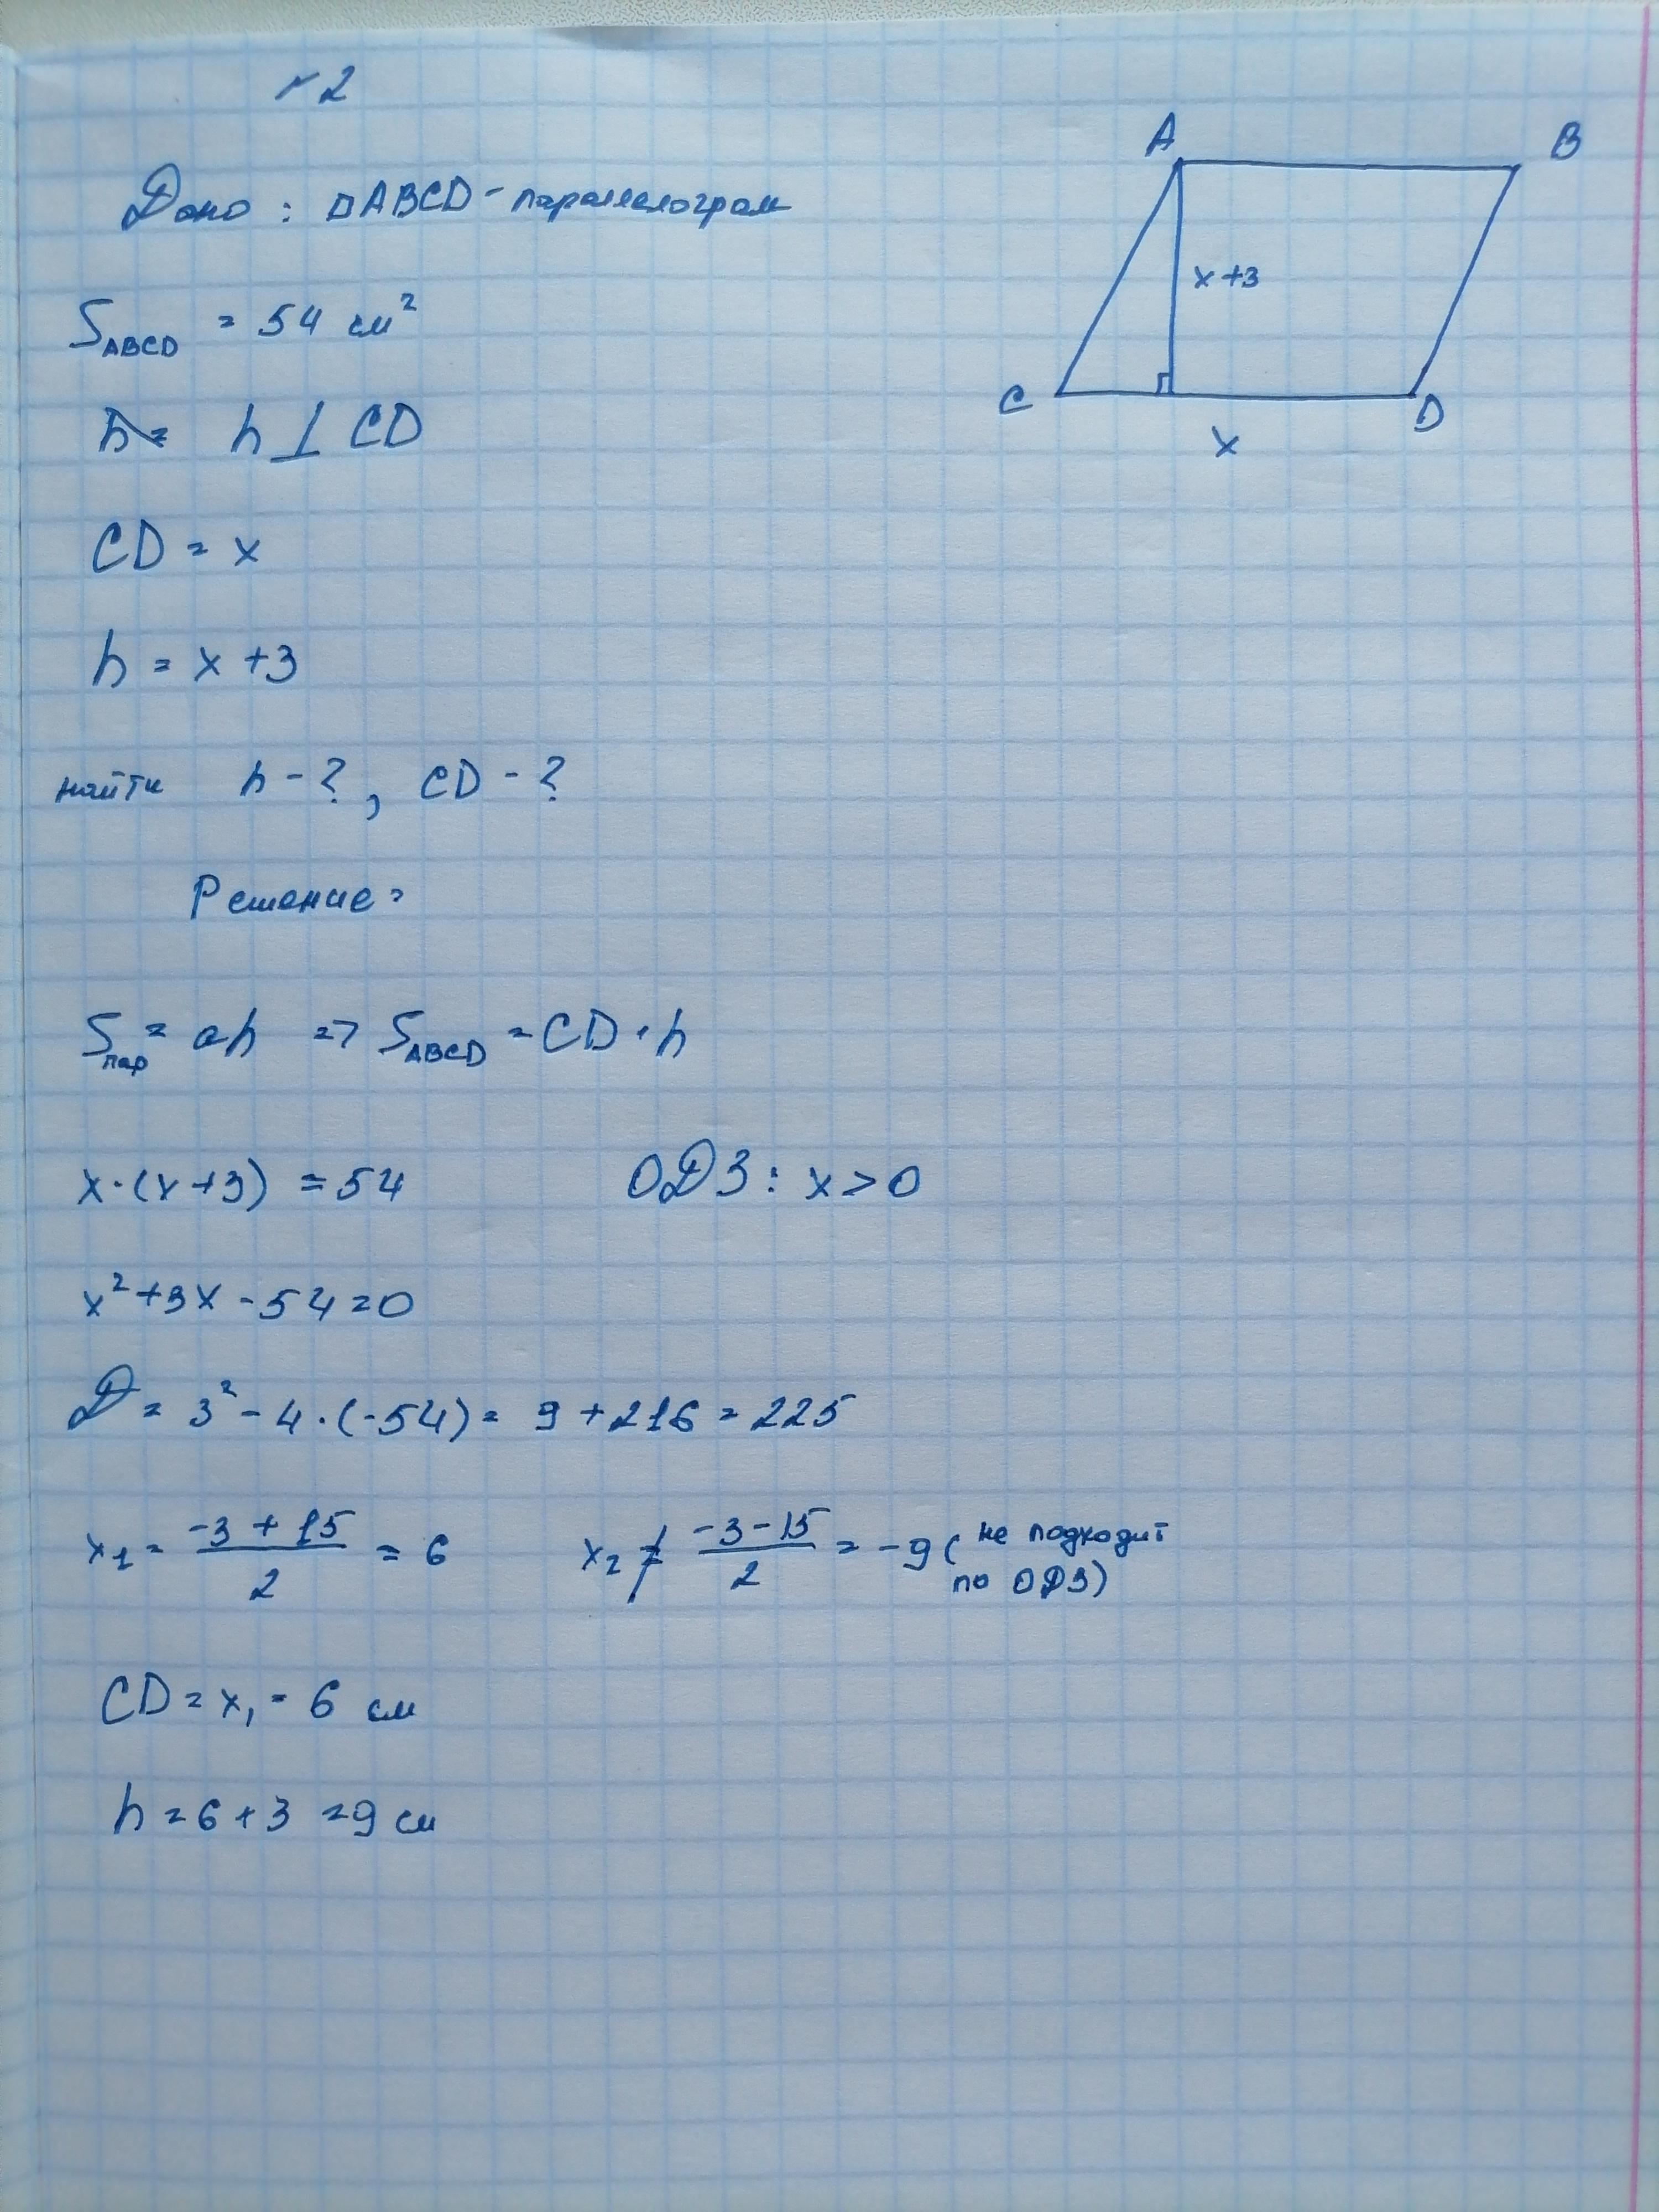 №2
Дано: ▱ABCD - параллелограм
S_ABCD = 54 см²
h ⊥ CD
CD = x
h = x + 3
найти h - ?, CD - ?
Решение:
S_пар = ah => S_ABCD = CD · h
x · (x + 3) = 54 ОДЗ: x > 0
x² + 3x - 54 = 0
D = 3² - 4 · (-54) = 9 + 216 = 225
x₁ = (-3 + 15)/2 = 6 x₂ ≠ (-3 - 15)/2 = -9 (не подходит
по ОДЗ)
CD = x₁ = 6 см
h = 6 + 3 = 9 см
A
B
x + 3
C
D
x